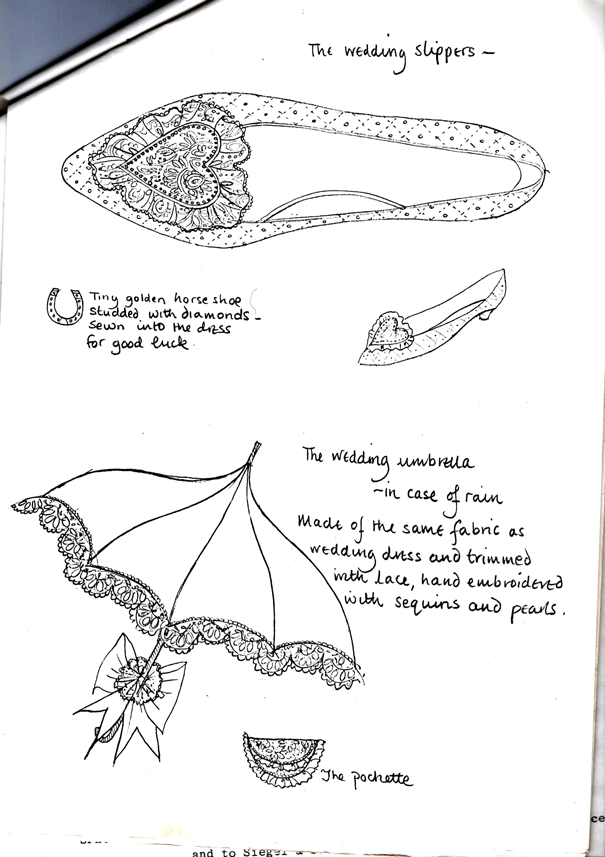 The wedding slippers –
Tiny golden horse shoe
studded with diamonds –
sewn into the dress
for good luck.
The wedding umbrella
– in case of rain
Made of the same fabric as
wedding dress and trimmed
with lace, hand embroidered
with sequins and pearls.
The pochette
ce
and to Siegel